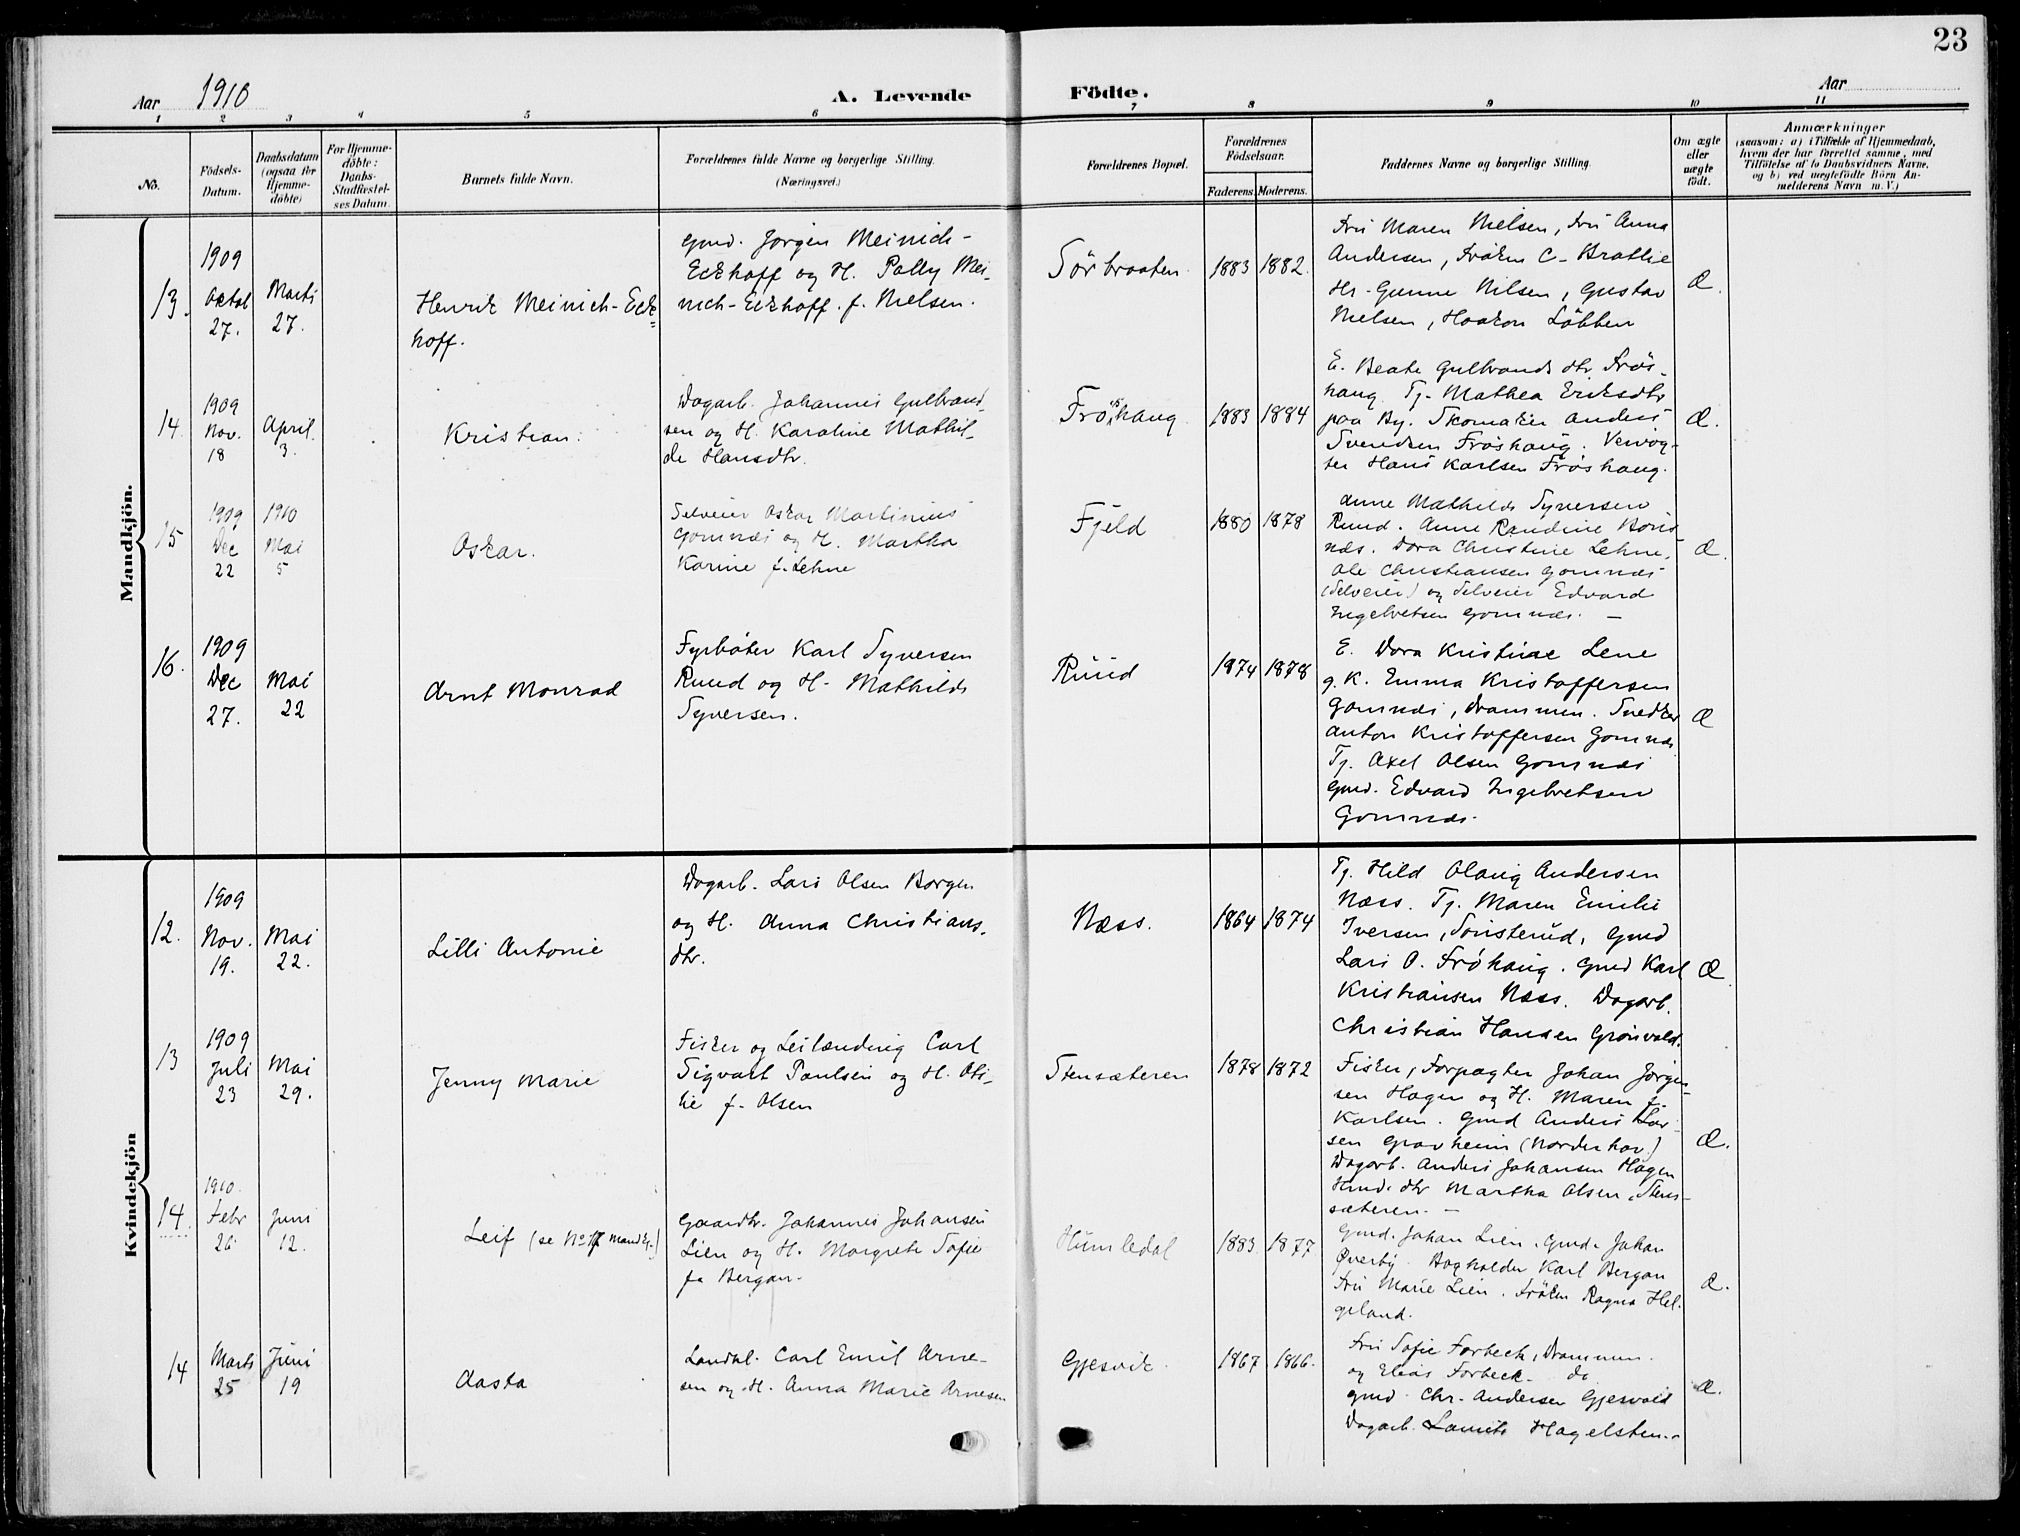 23
Aar 1910
A. Levende Födte.
Aar
1 2 3 4 5 6 7 8 9 10 11
No.
Födsels-
Datum.
Daabsdatum
(ogsaa for
Hjemme-
döbte)
For Hjemme-
döbte:
Daabs-
Stadfæstel-
ses Datum.
Barnets fulde Navn.
Forældrenes fulde Navne og borgerlige Stilling.
(Næringsvei.)
Forældrenes Bopæl.
Forældrenes
Födselsaar.
Faderens. Moderens.
Faddernes Navne og borgerlige Stilling.
Om ægte
eller
uægte
födt.
Anmærkninger
(saasom: a) i Tilfælde af Hjemmedaab,
hvem der har forrettet samme, med
Tilföielse af to Daabsvidners Navne,
og b) ved uægtefödte Börn An-
melderens Navn m. V.)
Mandkjön.
13.
1909
Octob
27.
Marts
27.
Henrik Meinich-Eck=
hoff.
Gmd. Jørgen Meinich-
Eckhoff og H. Polly Mei-
nich-Eckhoff f. Nielsen.
Sörbraaten
1883 1882.
Fru Maren Nielsen, Fru Anna
Andersen, Frøken C. Brattlie
Hr. Gunne Nilsen, Gustav
Nielsen, Haakon Løkken
Æ.
14.
1909
Nov.
18
April
3.
Kristian.
Dagarb. Johannes Gulbrand-
sen og H. Karoline Mathil-
de Hansdtr.
Frøshaug
1883 1884
E. Beate Gulbrandsdtr. Frøs-
haug. Tj. Mathea Eriksdtr
paa By. Skomaker Anders
Svendsen Frøshaug. Veivog-
ter Hans Karlsen Frøshaug.
Æ.
15
1909
Dec
22
1910
Mai
5
Oskar.
Selveier Oskar Martinius
Gomnæs og H. Martha
Karine f. Lehne
Fjeld
1880 1878
Anne Mathilde Syversen
Ruud. Anne Randine
næs. Dora Christine Lehne,
Ole Christiansen Gomnæs
(Selveier) og Selveier Edvard
Ingebretsen Gomnæs. —
Æ.
16.
1909
Dec
27.
Mai
22
Arnt Monrad
Fyrbøter Karl Syversen
Ruud og H. Mathilde
Syversen.
Ruud
1874 1878
E. Dora Kristine Lene
g.K. Emma Kristoffersen
Gomnæs, Drammen. Snedker
Anton Kristoffersen Gomnæs
Tj. Axel Olsen Gomnæs
Gmd. Edvard Ingebretsen
Gomnæs.
Æ
Kvindekjön
12.
1909
Nov.
19.
Mai
22.
Lilli Antonie
Dagarb. Lars Olsen Borgen
og H. Anna Christians-
dtr.
Næss.
1864 1874
Tj. Hild Olaug Andersen
Næss. Tj. Maren Emilie
Iversen, Sønsterud, Gmd
Lars O. Frøhaug. Gmd Karl
Kristiansen Næss. Dagarb.
Christian Hansen Grønvold.
Æ
13
1909
Juli
23
Mai
29.
Jenny Marie
Fisker og Leilænding Carl
Sigvart Paulsen og H. Oti-
lie f. Olsen
Stensæteren
1878 1872
Fisker, Forpagter Johan Jørgen-
sen Hagen og H. Maren f.
Karlsen. Gmd Anders Lar-
sen Gravheim (Norderhov.)
Dagarb. Anders Johansen Hagen
Hmd. dtr Martha Olsen, Stens-
sæteren. —
Æ.
14.
1910.
Febr
26
Juni
12.
Leif (se No 17 Mandkj.)
Gaardbr. Johannes Johansen
Lien og H. Margrete Sofie
f. Bergan.
Humledal
1883 1877
Gmd. Johan Lien. Gmd. Johan
Øverby. Bogholder Karl Bergan
Fru Marie Lien. Frøken Ragna Hel-
geland.
Æ.
14
Marts
25
Juni
19
Aasta
Landhl. Carl Emil Arne-
sen og H. Anna Marie Arnesen
Gjesvik.
1867 1866.
Fru Sofie Forbeck, Drammen.
og Elias Forbeck do
Gmd. Chr. Andersen Gjesvold
Dagarb. Hagelsten.
Æ.